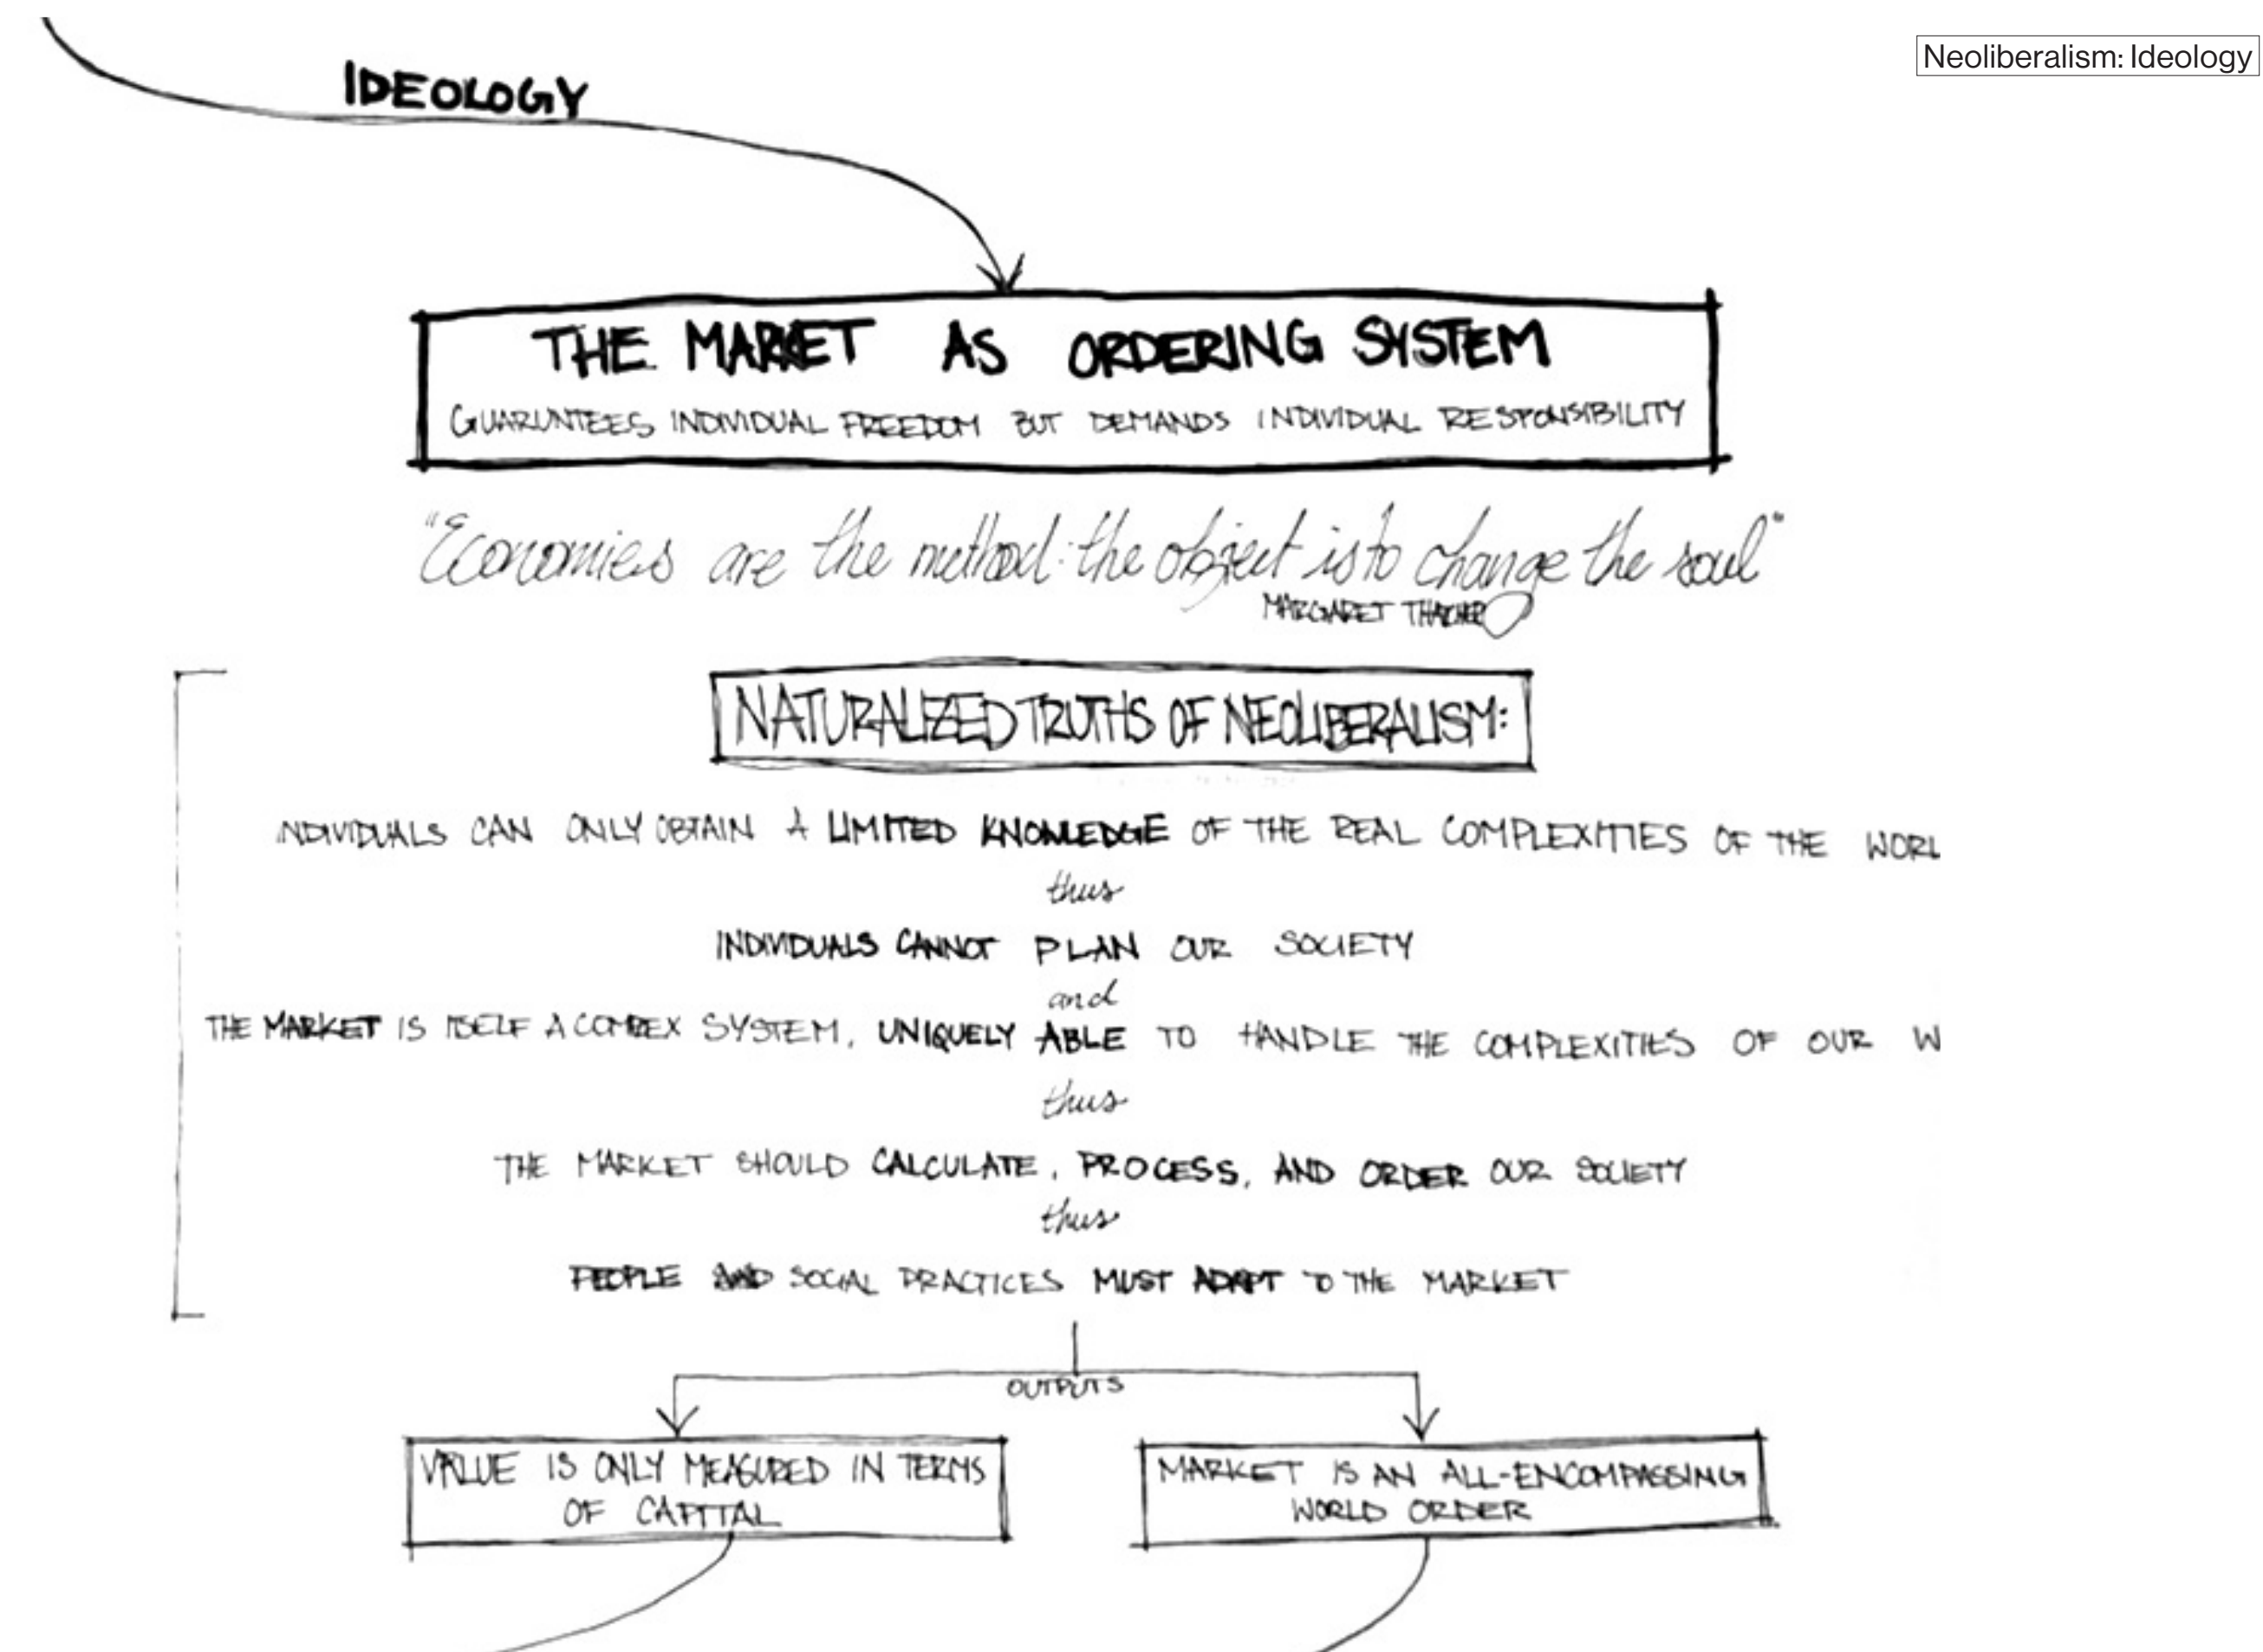 Neoliberalism: Ideology
IDEOLOGY
THE MARKET AS ORDERING SYSTEM
GUARUNTEES INDIVIDUAL FREEDOM BUT DEMANDS INDIVIDUAL RESPONSIBILITY
"Economies are the method: the object is to change the soul"
MARGARET THATCHER
NATURALIZED TRUTHS OF NEOLIBERALISM:
INDIVIDUALS CAN ONLY OBTAIN A LIMITED KNOWLEDGE OF THE REAL COMPLEXITIES OF THE WORL
thus
INDIVIDUALS CANNOT PLAN OUR SOCIETY
and
THE MARKET IS ITSELF A COMPLEX SYSTEM, UNIQUELY ABLE TO HANDLE THE COMPLEXITIES OF OUR W
thus
THE MARKET SHOULD CALCULATE, PROCESS, AND ORDER OUR SOCIETY
thus
PEOPLE AND SOCIAL PRACTICES MUST ADAPT TO THE MARKET
OUTPUTS
VALUE IS ONLY MEASURED IN TERMS
OF CAPITAL
MARKET IS AN ALL-ENCOMPASSING
WORLD ORDER